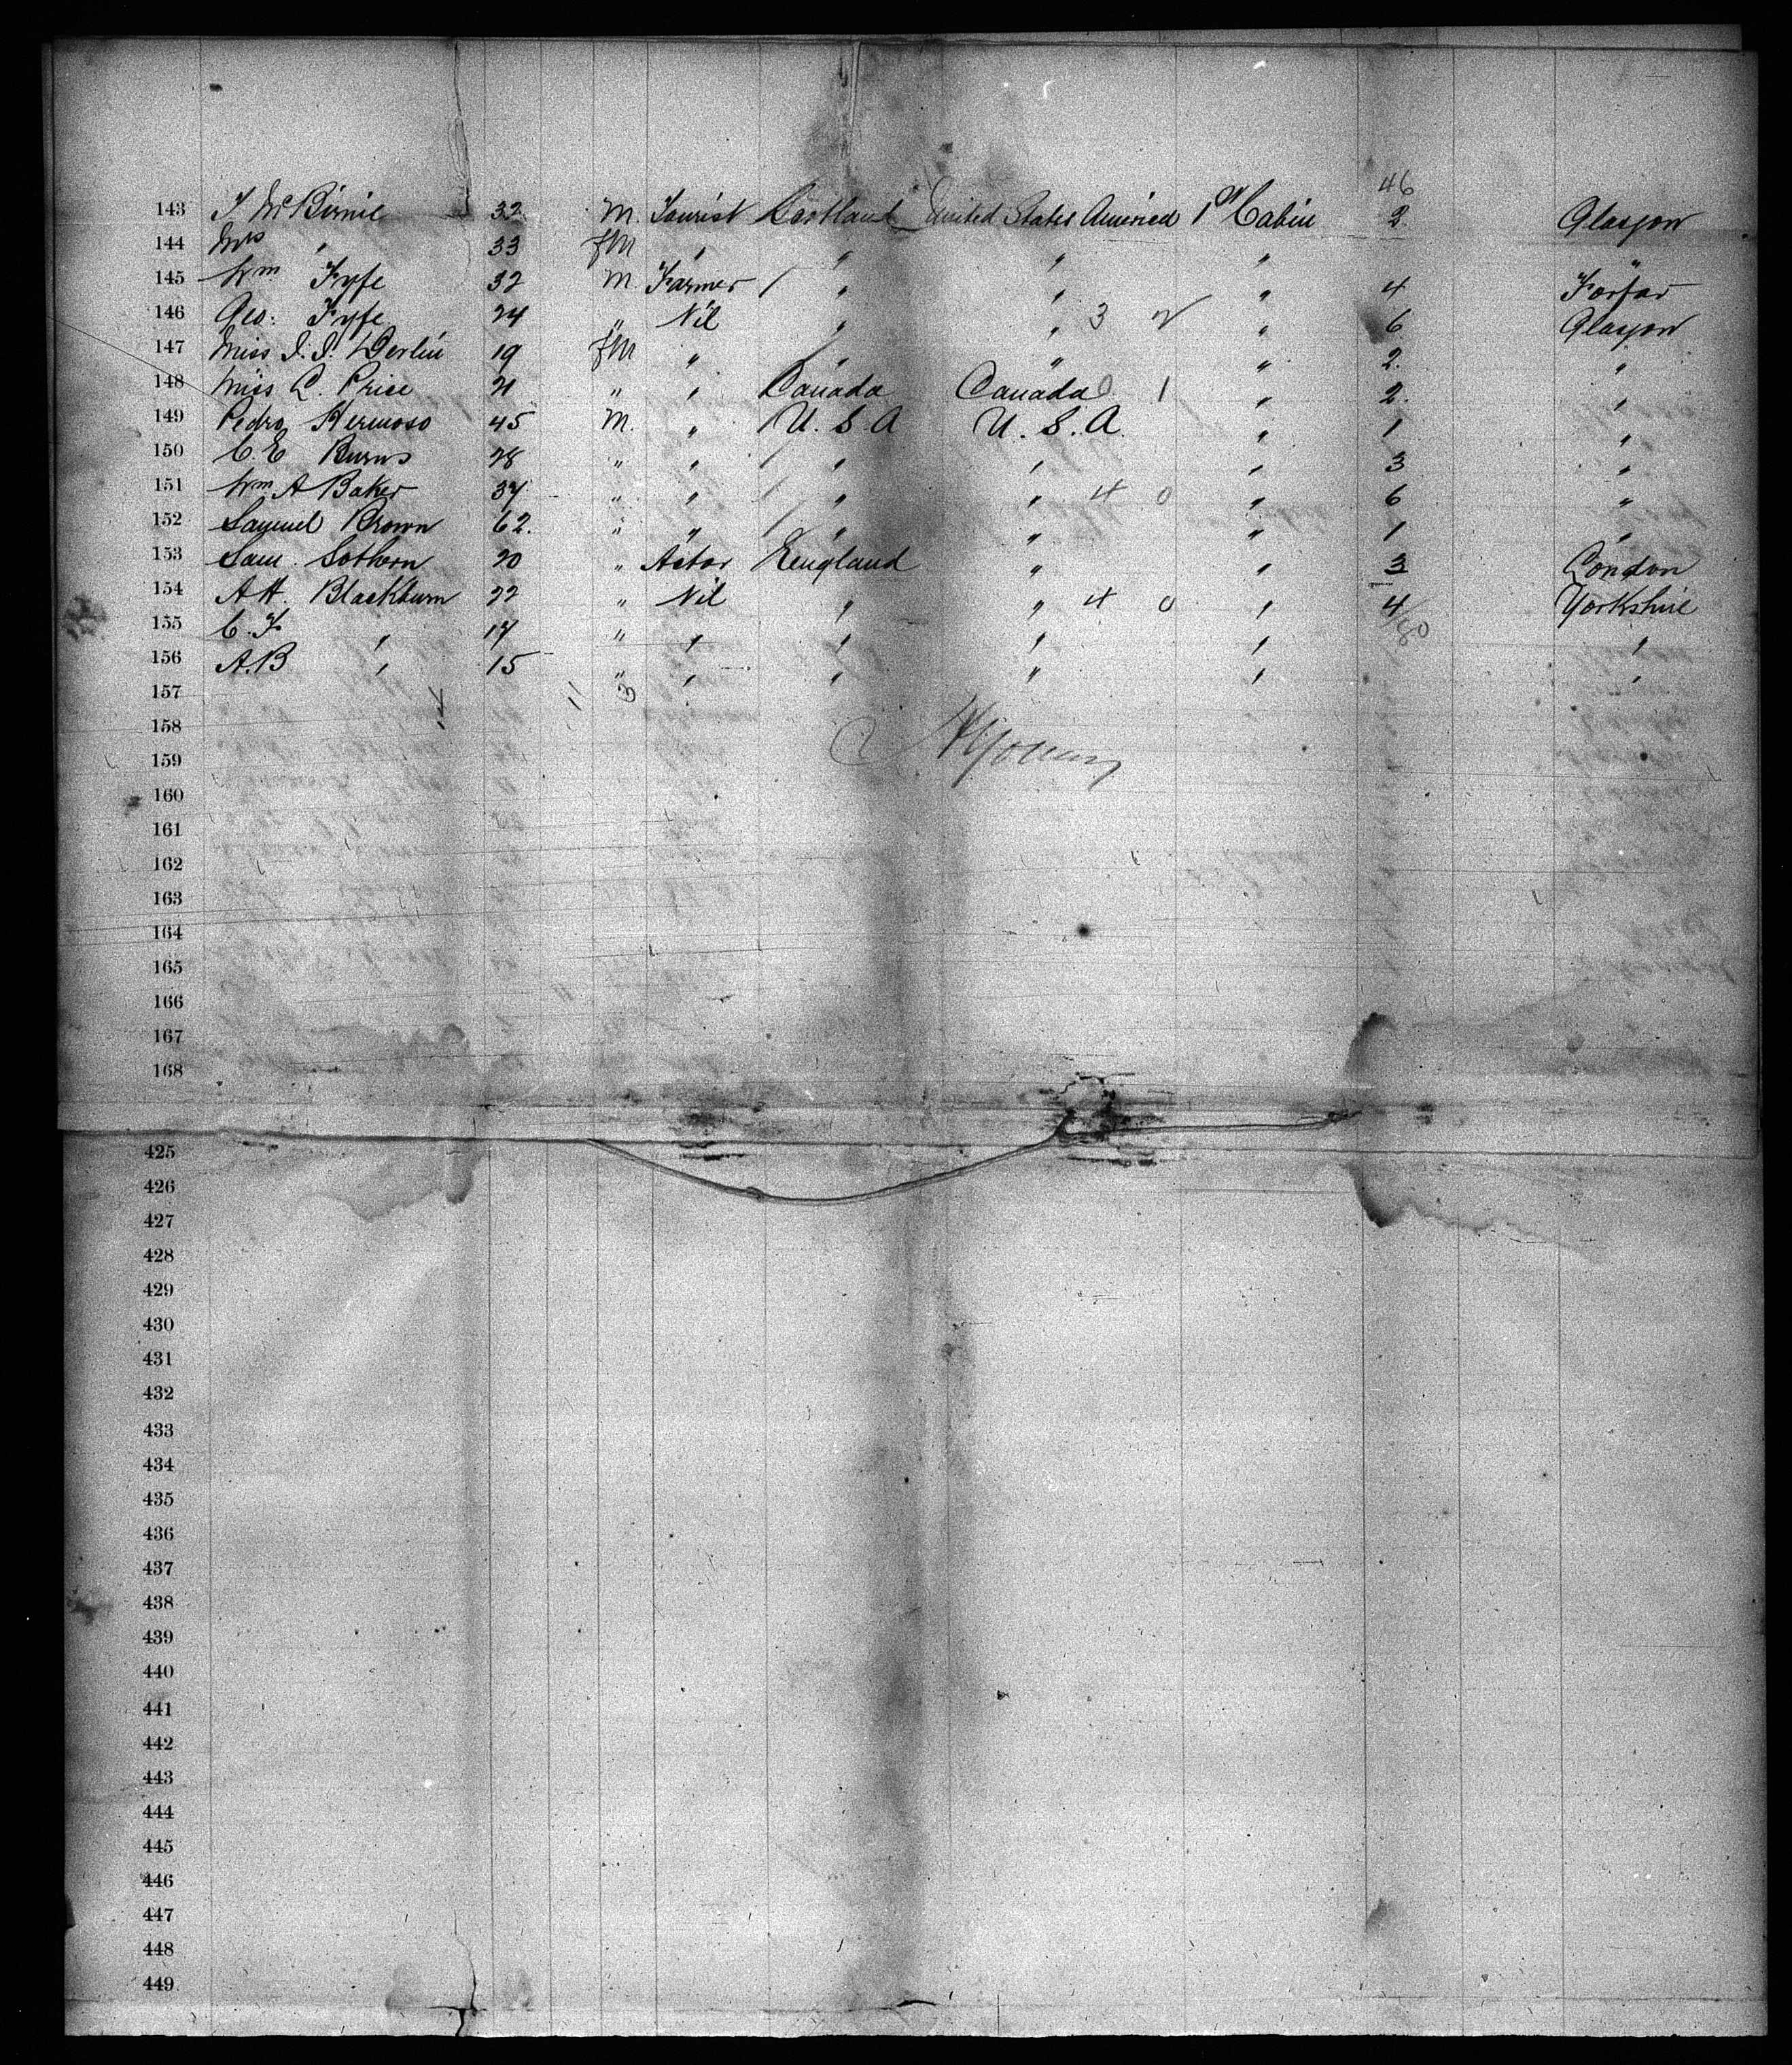 46
143 J McBirnie 32 M. Tourist Scotland United States America 1st Cabin 2. Glasgow
144 Mrs " 33 fM " " " " "
145 Wm Fyfe 32 M. Farmer / " " " 4 Forfar
146 Geo: Fyfe 24 " Nil " " 3 2 " 6 Glasgow
147 Miss J. J. 19 fM " / " " " 2. "
148 Miss L. Price 21 " " Canada Canada 0 1 " 2. "
149 Pedro Hermoso 45 M. " / U.S.A U.S.A. " 1 "
150 C. E Burns 28 " " / " " " 3 "
151 Wm A Baker 37 " " / " " 4 0 " 6 "
152 Samuel Brown 62. " " / " " " 1 "
153 Sam. Sothern 20 " Actor England " " 3 London
154 A H. Blackburn 22 " Nil " " 4 0 " 4 Yorkshire
155 C. F " 17 " " " " " "
156 A. B " 15 " " " " " "
157 11 3
158
159
160
161
162
163
164
165
166
167
168
425
426
427
428
429
430
431
432
433
434
435
436
437
438
439
440
441
442
443
444
445
446
447
448
449